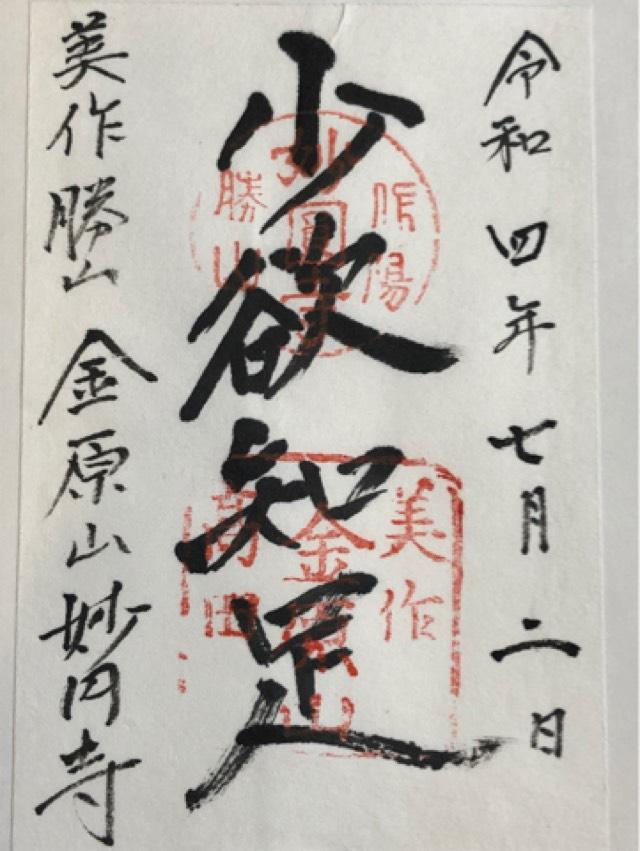 令和四年七月二日
少欲知足
美作勝山 金原山妙円寺
作陽
妙圓寺
勝山
美作
金原山
高田